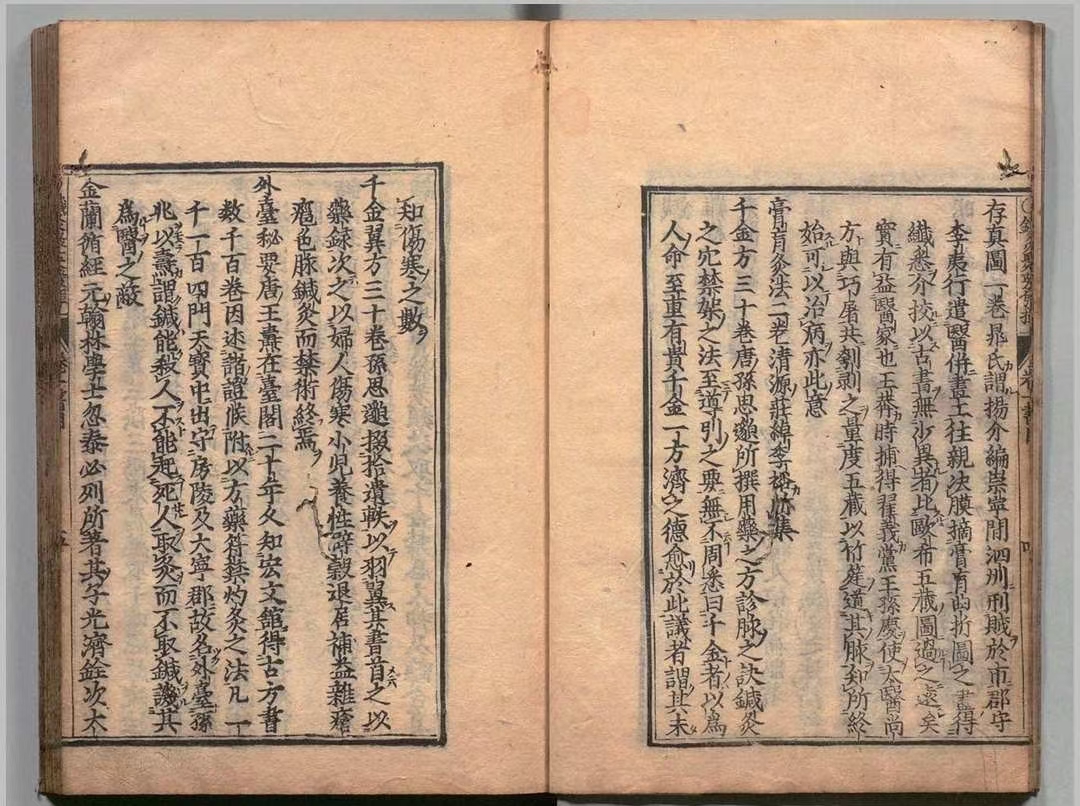 存真圖一卷晁氏謂揚介編崇寧間泗洲刑賊於市郡守
李夷行遣醫併畫工往親决膜摘膏肓曲折圖之盡得
纖悉介挍以古書無少異者比歐希五藏圖過之遠矣
實有益醫家也王莽時捕得翟義黨王孫慶使太醫尚
方與巧屠共刳剥之量度五藏以竹筳道其脉知所終
始可以治病亦此意
膏肓灸法二卷清源莊綽季裕所集
千金方三十卷唐孫思邈所撰用藥之方診脉之訣鍼灸
之穴禁架之法至道引之要無不周悉曰千金者以爲
人命至重有貴千金一方濟之德愈於此議者謂其未
知傷寒之數
千金翼方三十卷孫思邈掇拾遺軼以羽翼其書首之以
藥録次之以婦人傷寒小兒養性辟穀退居補益雜瘡
色脉鍼灸而禁術終焉
外臺秘要唐王燾在臺閣二十年久知宏文館得古方書
數千百卷因述諸證候附以方藥符禁灼灸之法凡一
千一百四門天寶中出守房陵及大寧郡故名外臺孫
兆以燾謂鍼能殺人不能起死人取灸而不取鍼譏其
爲醫之敝
金蘭循經元翰林學士忽泰必列所著其子光濟銓次大